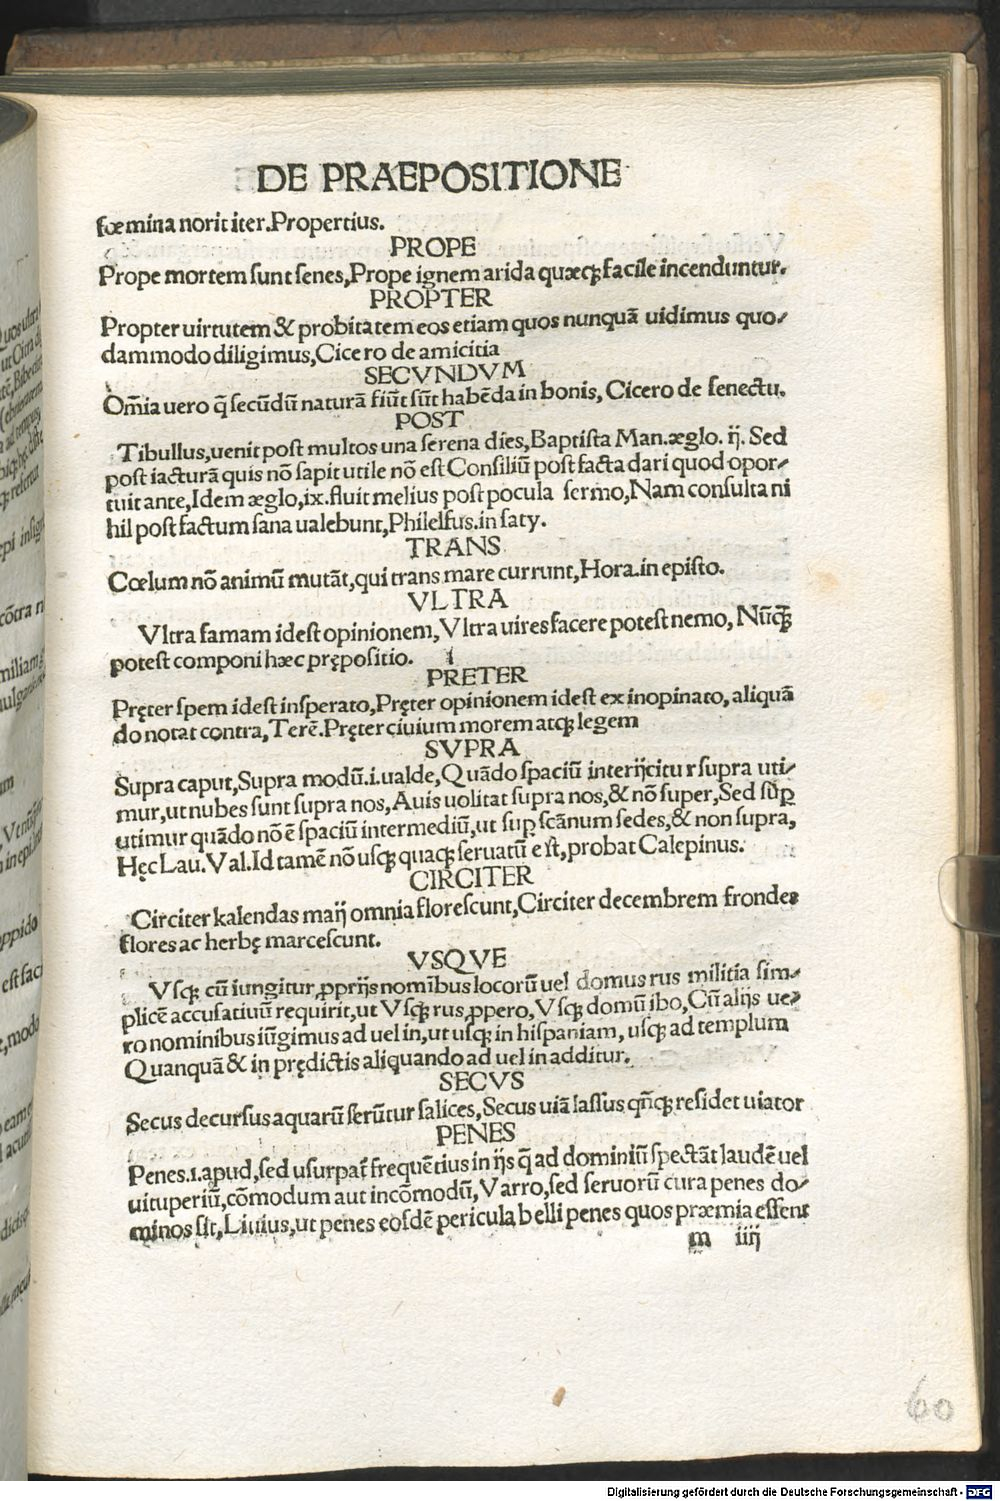 DE PRAEPOSITIONE
fœmina norit iter.Propertius.
PROPE
Prope mortem sunt senes,Prope ignem arida quæcꝗ facile incenduntur.
PROPTER
Propter uirtutem & probitatem eos etiam quos nunquā uidimus quo/
dammodo diligimus,Cicero de amicitia
SECVNDVM
Om̄ia uero q̄ secūdū naturā fiūt sūt habēda in bonis, Cicero de senectu.
POST
Tibullus,uenit post multos una serena dies,Baptista Man.æglo. ij. Sed
post iacturā quis nō sapit utile nō est Consiliū post facta dari quod opor/
tuit ante,Idem æglo,ix.fluit melius post pocula sermo,Nam consulta ni
hil post factum sana ualebunt,Philelfus.in saty.
TRANS
Cœlum nō animū mutāt,qui trans mare currunt,Hora.in episto.
VLTRA
Vltra famam idest opinionem,Vltra uires facere potest nemo, Nūꝗ̄
potest componi hæc prępositio.
PRETER
Pręter spem idest insperato,Pręter opinionem idest ex inopinato, aliquā
do notat contra,Terē.Pręter ciuium morem atꝗ legem
SVPRA
Supra caput,Supra modū.i.ualde,Quādo spaciū interijcitur supra uti/
mur,ut nubes sunt supra nos,Auis uolitat supra nos,& nō super,Sed sūꝑ
utimur quādo nō ē spaciū intermediū,ut suꝑ scānum sedes,& non supra,
Hęc Lau.Val.Id tamē nō usꝗ quaꝗ seruatū est,probat Calepinus.
CIRCITER
Circiter kalendas maij omnia florescunt,Circiter decembrem frondes
flores ac herbę marcescunt.
VSQVE
Vsꝗ cū iungitur ꝓprijs nomībus locorū uel domus rus militia sim/
plicē accusatiuū requirit,ut Vsꝗ rus ꝓpero,Vsꝗ domū ibo,Cū alijs ue/
ro nominibus iūgimus ad uel in,ut usꝗ in hispaniam, usꝗ ad templum
Quanquā & in prędictis aliquando ad uel in additur.
SECVS
Secus decursus aquarū serūtur salices,Secus uiā lassus qn̄cꝗ residet uiator
PENES
Penes.i.apud,sed usurpat̄ frequētius in ijs q̄ ad dominiū spectāt laudē uel
uituperiū,cōmodum aut incōmodū,Varro,sed seruorū cura penes do/
minos sit,Liuius,ut penes eosdē pericula belli penes quos præmia essent
m iiij
60
Digitalisierung gefördert durch die Deutsche Forschungsgemeinschaft - DFG